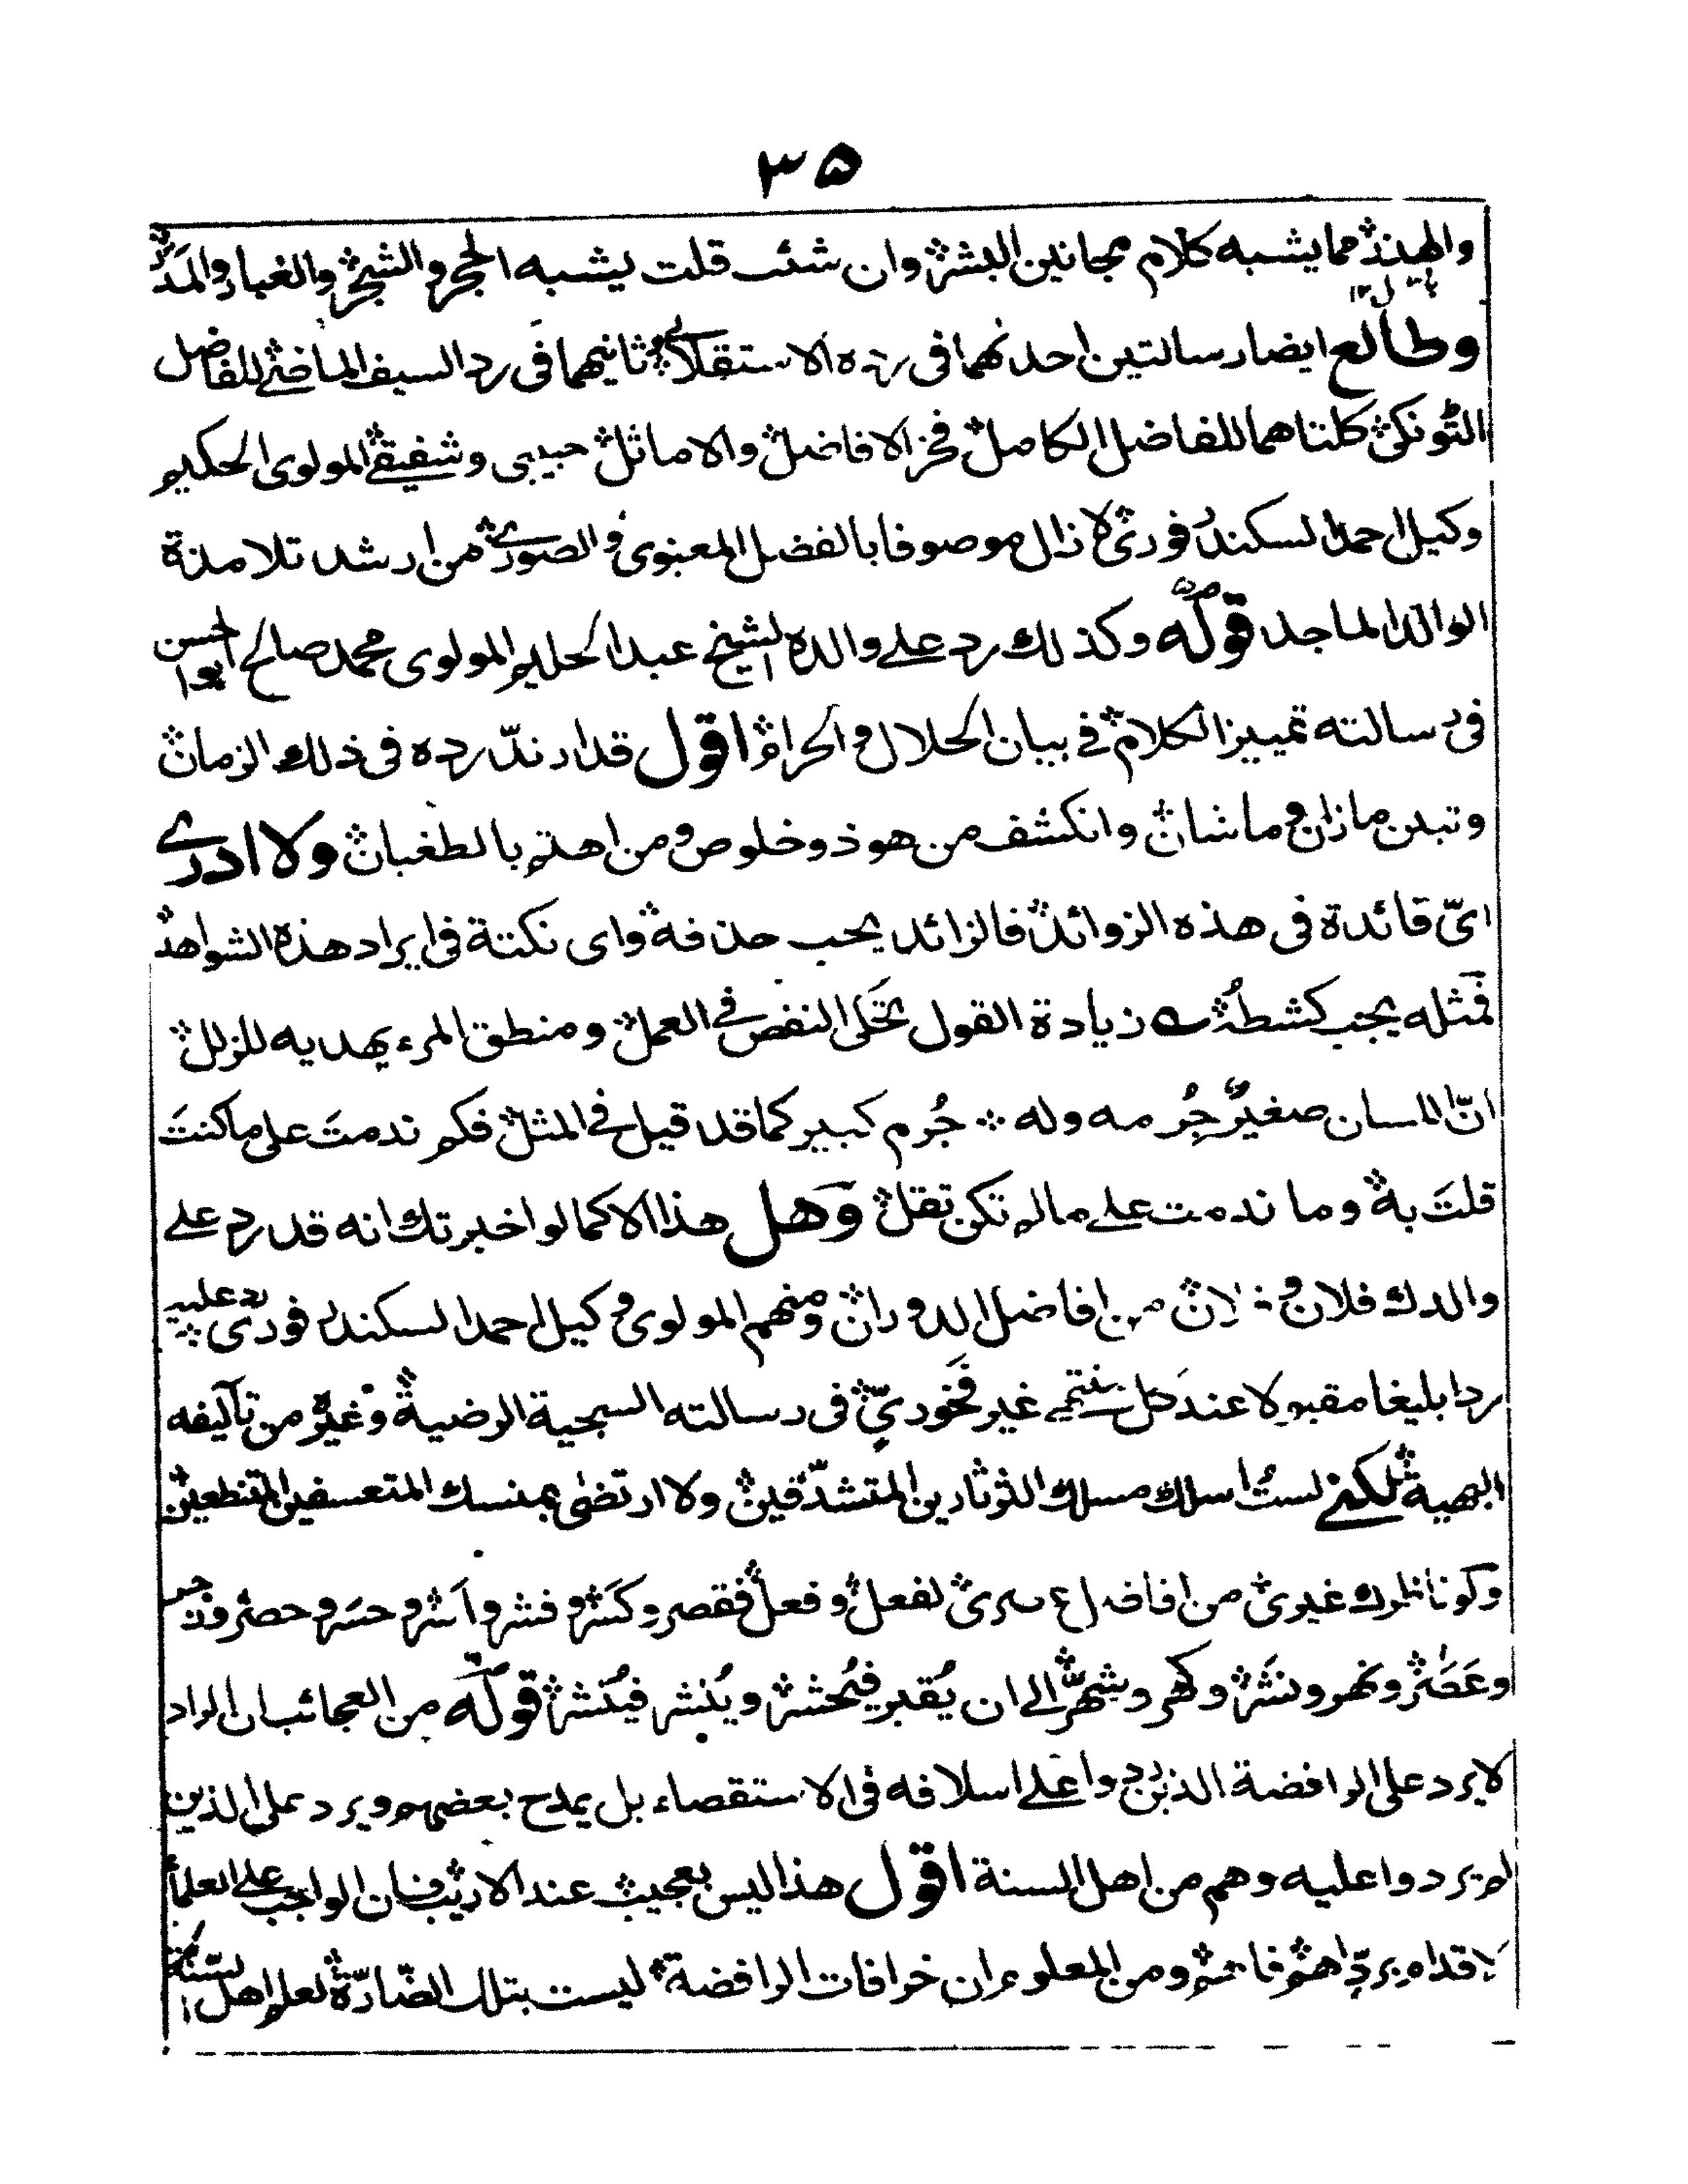 ٣٥
والهذر مما يشبه كلام مجانين البشر وان شئت قلت يشبه الحجر والشجر والغبار والمدر
وطالع ايضا رسالتين احدٰهما فى رده الاستقلالى وثانيهما فى رد السيف الماضى للفاضل
التونكى كلتاهما للفاضل الكامل فخر الافاضل والاماثل حبيبى وشفيقى المولوى الحكيم
وكيل احمد السكندرفورى لا زال موصوفا بالفضل المعنوى والصورى من ارشد تلامذة
الوالد الماجد قوله وكذلك رد على والده الشيخ عبد الحليم المولوى محمد صالح ابو الحسن
فى رسالته تمييز الكلام فى بيان الحلال والحرام اقول قد ارتد رده فى ذلك الزمان
وتبين ما زان وما شان وانكشف من هو ذو خلوص ومن اهتم بالطغيان ولا ادرى
اىّ فائدة فى هذه الزوائد فالزائد يجب حذفه واى نكتة فى ايراد هذه الشواهد
فمثله يجب كشطه زيادة القول تحكى النقص فى العمل ومنطق المرء يهديه للزلل
انّ اللسان صغيرٌ جُرمه وله جُرم كبير كما قد قيل فى المثل فكم ندمتَ على ما كنتَ
قلتَ به وما ندمت على ما لم تكن تقل وهل هذا الا كما لو اخبرتك انه قد رد على
والدك فلان وفلان من افاضل الدوران ومنهم المولوى وكيل احمد السكندرفورى رد عليه
ردا بليغا مقبولا عند كل غير فخورىّ فى رسالته السجية الرضية وغيره من تآليفه
البهية لكنى لستُ اسلك مسلك الثرثارين المتشدّقين ولا ارتضى بمنسك المتعسفين المتنطعين
وكونا نلوك غيرى من لفعل وفعل فقصر وكثر وفشر واشر وحسر وحصر
وعَصَر ونهر ونَشَر وكهر وشهّر الى ان يُقبر فيُحشر ويُنشر فيُنشر قوله من العجائب ان الراد
لا يرد على الرافضة الذين ردوا على اسلافه فى الاستقصاء بل يمدح بعضهم ويرد على الذين
لم يردوا عليه وهم من اهل السنة اقول هذا ليس بعجيب عند الاريب فان الواجب على العلماء
الاقدام بردّ اهم فاهم ومن المعلوم ان خرافات الرافضة ليست بتلك الضارّة لعلم اهل السنة